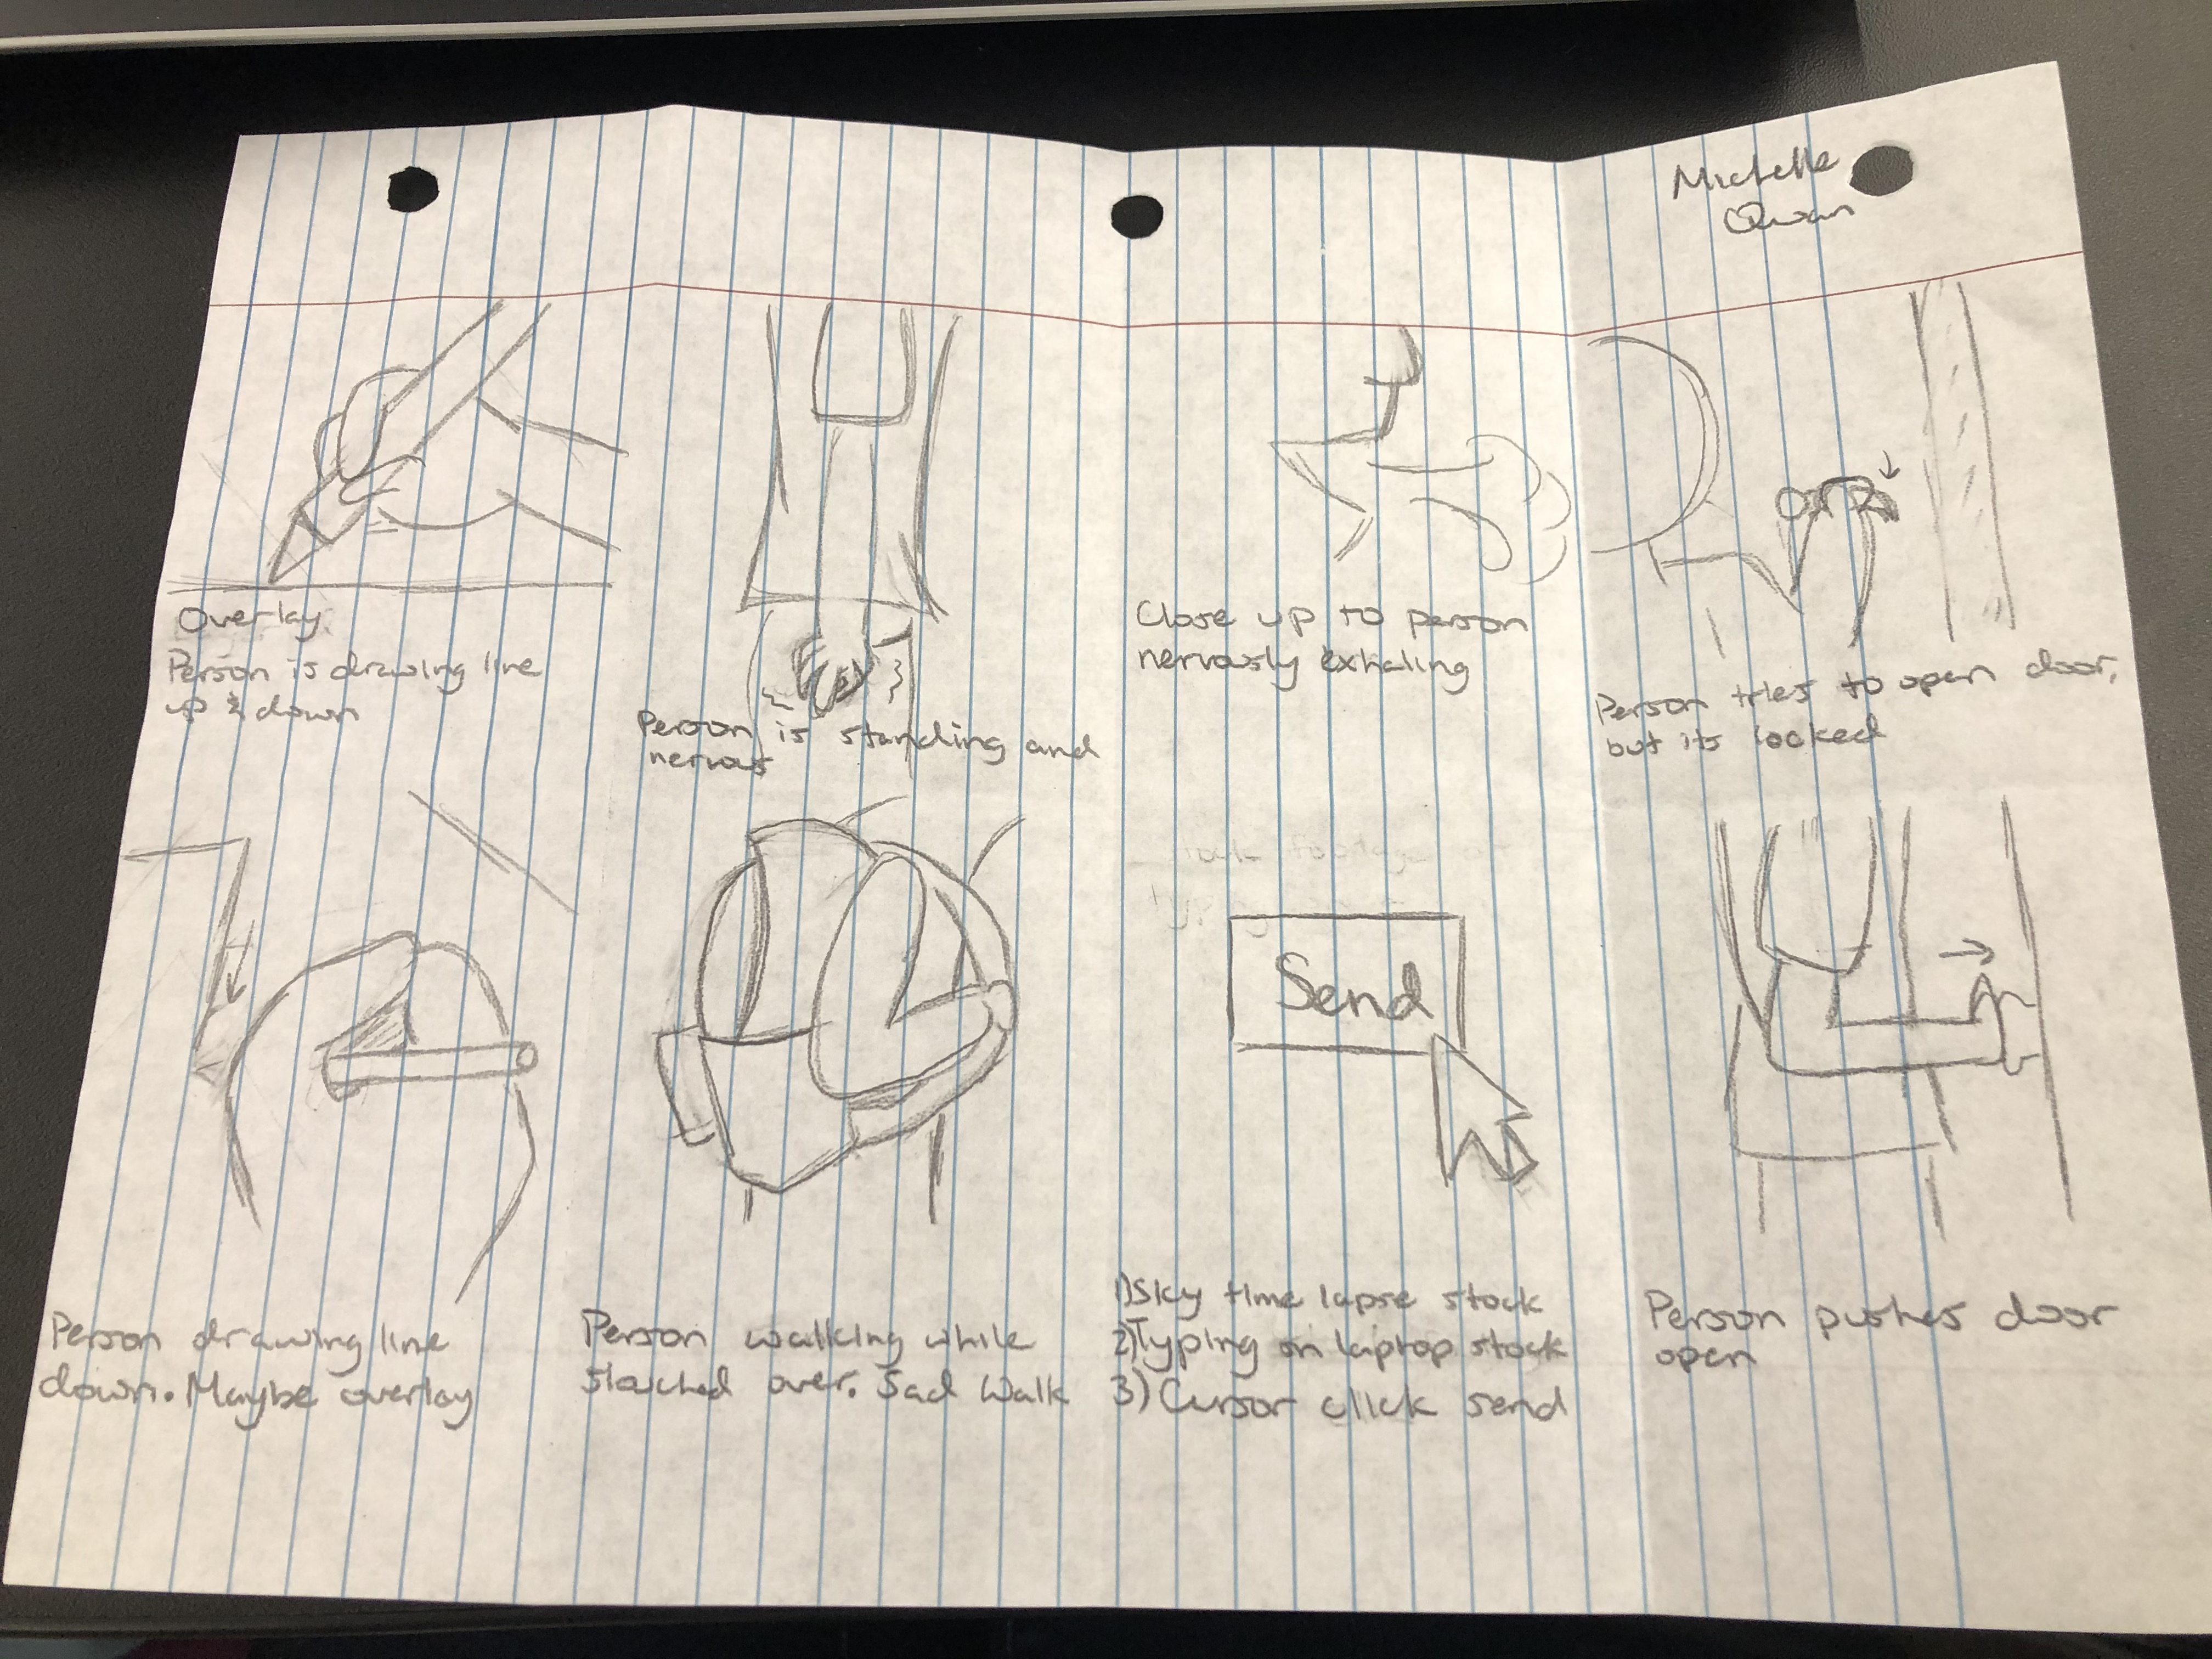 Michelle
Qwan
Overlay
Person is drawing line
up & down
Person is standing and
nervous
Close up to person
nervously exhaling
Person tries to open door,
but its locked
Person drawing line
down. Maybe overlay
Person walking while
slouched over. Sad Walk
Send
1) Sky time lapse stock
2) Typing on laptop stock
3) Cursor click send
Person pushes door
open